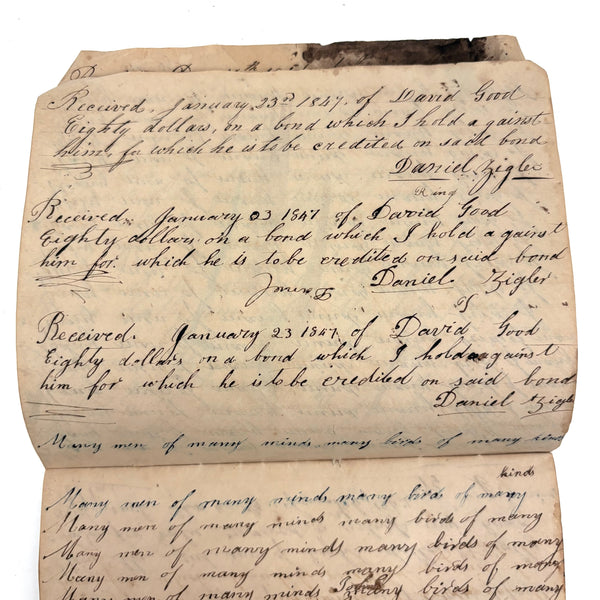 Received, January 23rd 1847. of David Good
Eighty dollars, on a bond which I hold a gainst
him, for which he is to be credited on said bond
Daniel Zigler
Received, January 23 1847 of David Good
Eighty dollars on a bond which I hold a gainst
him for which he is to be credited on said bond
Daniel Zigler
Received. January 23 1847. of David Good
Eighty dollars on a bond which I hold against
him for which he is to be credited on said bond
Daniel Zigler
Many men of many minds many birds of many kinds
kinds
Many men of many minds many birds of many
Many men of many minds many birds of many
Many men of many minds many birds of many
Many men of many minds many birds of many
Many men of many minds many birds of many